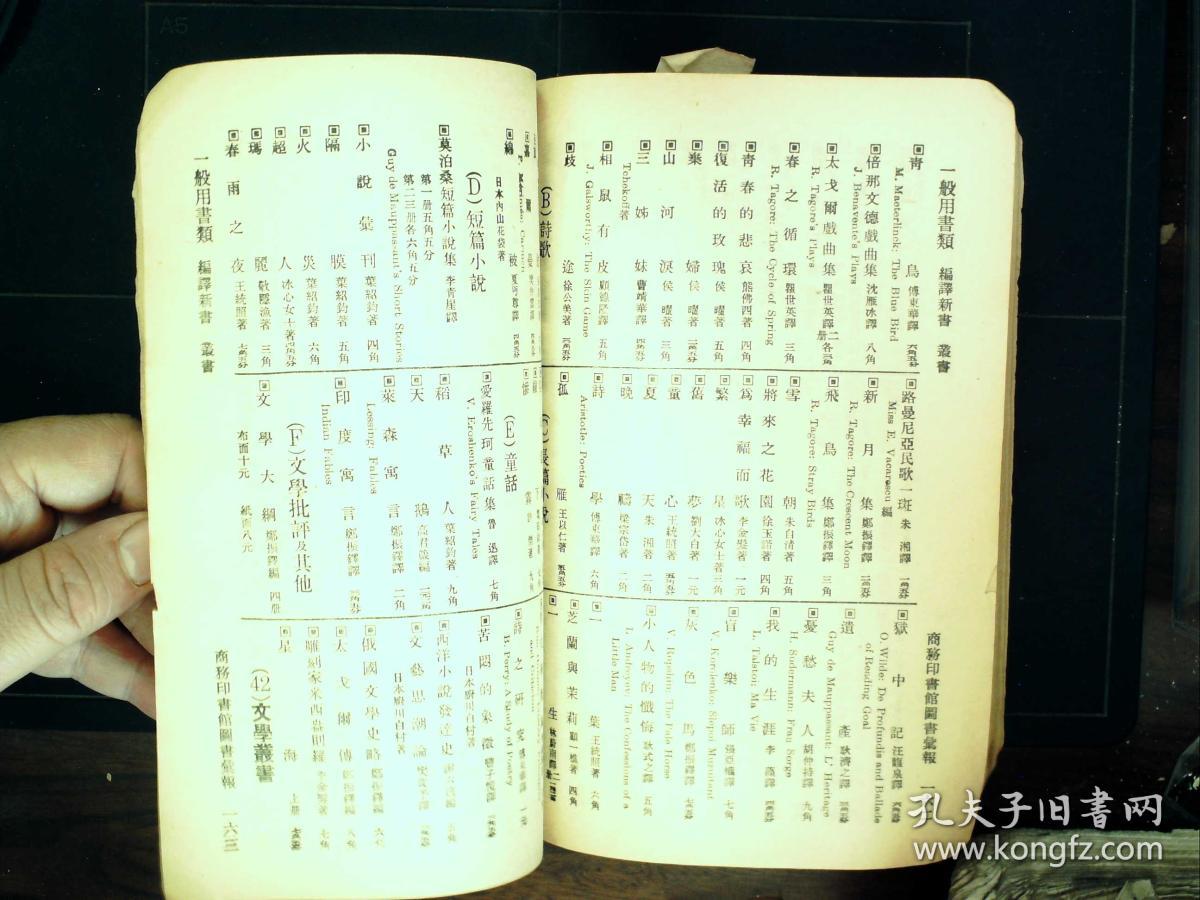 一般用書類 編譯新書 叢書
青鳥 傅東華譯 六角五分
M. Maeterlinck: The Blue Bird
倍那文德戲曲集 沈雁冰譯 八角
J. Benavente's Plays
太戈爾戲曲集 瞿世英譯 二册 各三角
R. Tagore's Plays
春之循環 瞿世英譯 三角
R. Tagore: The Cycle of Spring
青春的悲哀 熊佛西著 四角
復活的玫瑰 侯曜著 五角
棄婦 侯曜著
山河淚 侯曜著 三角
三姊妹 曹靖華譯
Tchekoff著
相鼠有皮 顧德隆譯 五角
J. Galsworthy: The Skin Game
歧途 徐公美著
(B)詩歌
路曼尼亞民歌一斑 朱湘譯
Miss E. Vacarescu 編
新月集 鄭振鐸譯
R. Tagore: The Crescent Moon
飛鳥集 鄭振鐸譯 三角
R. Tagore: Stray Birds
雪朝 朱自清著 五角
將來之花園 徐玉諾著 四角
爲幸福而歌 李金髮著 一元
繁星 冰心女士著 三角
舊夢 劉大白著 一元
童心 王統照著
夏天 朱湘著 二角
晚禱 梁宗岱著 二角
詩學 傅東華譯 六角
Aristotle: Poetics
(C)長篇小說
孤雁 王以仁著
獄中記 汪馥泉譯
O. Wilde: De Profundis and Ballade
of Reading Goal
遺產 耿濟之譯
Guy de Maupassant: L' Heritage
憂愁夫人 胡仲持譯 九角
H. Sudermann: Frau Sorge
我的生涯 李藻譯
L. Tolstoi: Ma Vie
盲樂師 張亞權譯 七角
V. Korolenko: Slepoi Muruilant
灰色馬 鄭振鐸譯 七角
V. Ropshin: The Pale Horse
小人物的懺悔 耿式之譯 五角
L. Andreyev: The Confessions of a
Little Man
一葉 王統照著 六角
芝蘭與茉莉 顧一樵著 四角
一生
商務印書館圖書彙報
日本內山花袋著
(D)短篇小說
莫泊桑短篇小說集 李青崖譯
第一册五角五分
第二三册各六角五分
Guy de Maupassant's Short Stories
小說彙刊 葉紹鈞著 四角
隔膜 葉紹鈞著 五角
火災 葉紹鈞著 六角
超人 冰心女士著
瑪麗 敬隱漁著 三角
春雨之夜 王統照著
一般用書類 編譯新書 叢書
(E)童話
愛羅先珂童話集 魯迅譯 七角
V. Eroshenko's Fairy Tales
稻草人 葉紹鈞著 九角
天鵝 高君箴編
萊森寓言 鄭振鐸譯 二角
Lessing: Fables
印度寓言 鄭振鐸譯
Indian Fables
(F)文學批評及其他
文學大綱 鄭振鐸編 四册
布面十元 紙面八元
詩之研究
B. Perry: A Study of Poetry
苦悶的象徵
日本廚川白村著
西洋小說發達史
文藝思潮論
日本廚川白村著
俄國文學史略 鄭振鐸編 六角
太戈爾傳
雕刻家米西盎則羅 李金髮著
星海 上册
(42)文學叢書
商務印書館圖書彙報 一六三
孔夫子旧書网
www.kongfz.com
A5